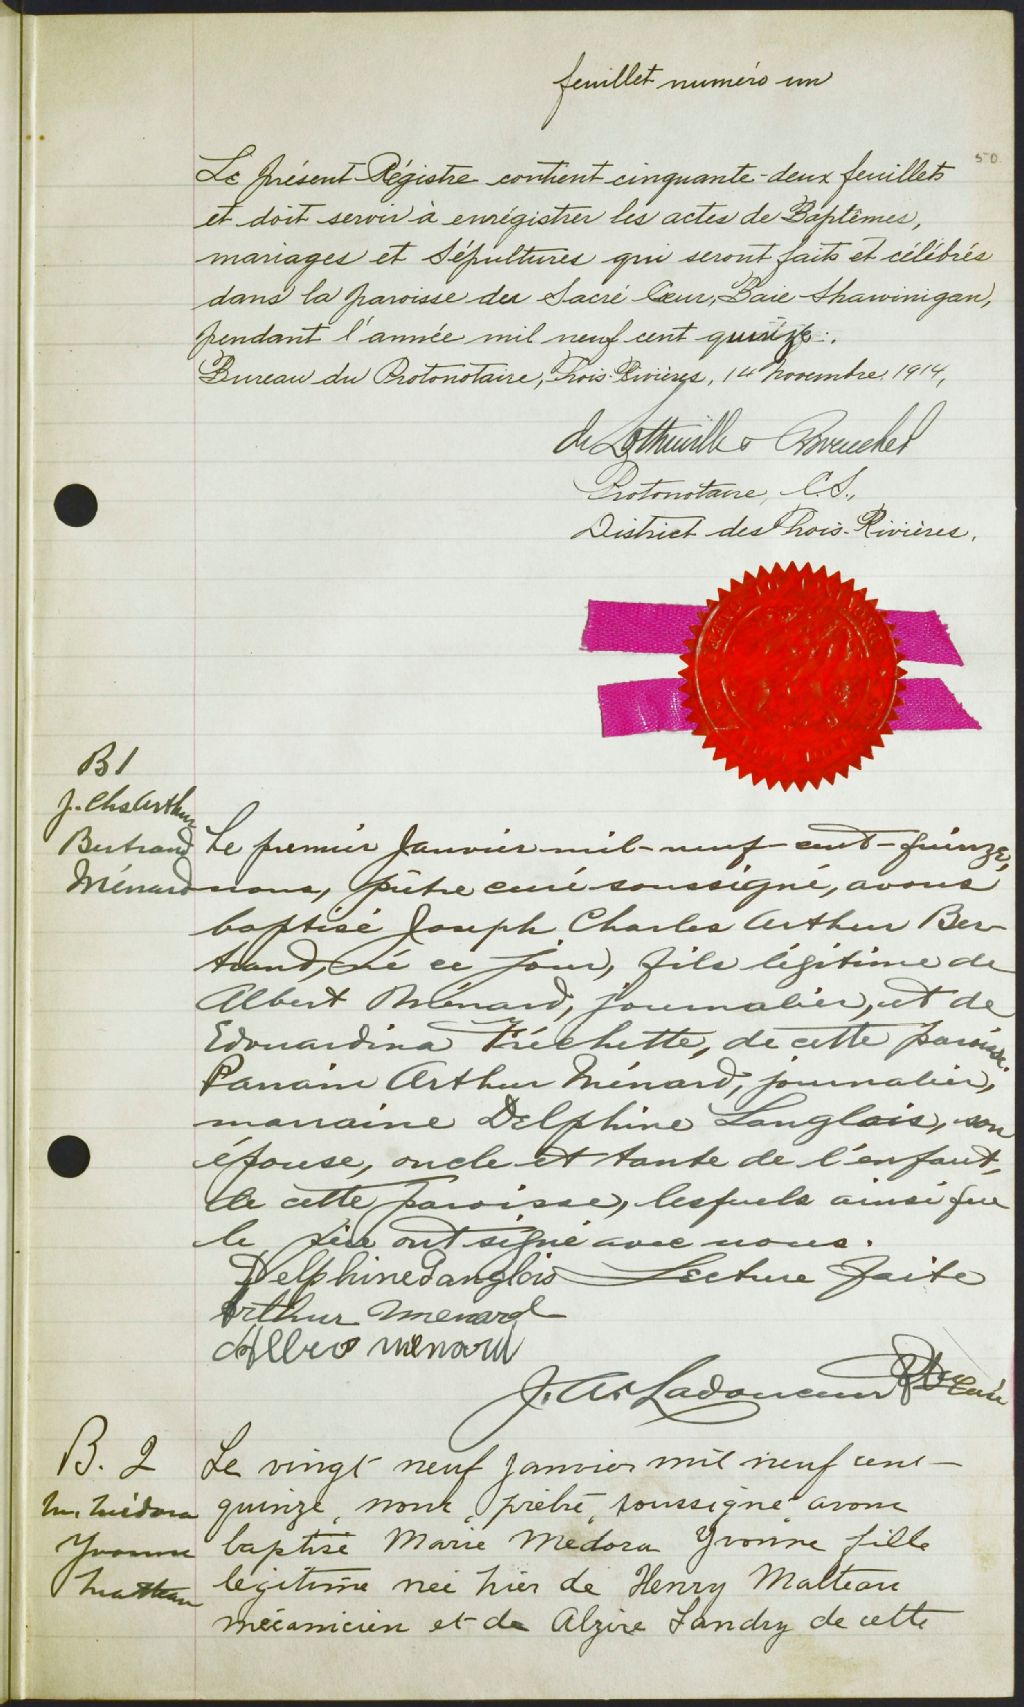 feuillet numéro un
50
Le présent Régistre contient cinquante-deux feuillets
et doit servir à enrégistrer les actes de Baptêmes,
mariages et Sépultures qui seront faits et célébrés
dans la paroisse du Sacré Cœur, Baie-Shawinigan,
pendant l'année mil neuf cent quinze.
Bureau du Protonotaire, Trois-Rivières, 14 Novembre 1914,
Protonotaire, C.S.,
District des Trois-Rivières.
B1
J. Chs Arthur
Bertrand
Ménard
Le premier Janvier mil-neuf-cent-quinze,
nous, prêtre curé soussigné, avons
baptisé Joseph Charles Arthur Ber-
trand, né ce jour, fils légitime de
Albert Ménard, journalier, et de
Edouardina Fréchette, de cette paroisse.
Parrain Arthur Ménard, journalier,
marraine Delphine Langlois, son
épouse, oncle et tante de l'enfant,
de cette paroisse, lesquels ainsi que
le père ont signé avec nous.
Delphine Langlois Lecture faite
Arthur Menard
Menard
J. A. Ladouceur Ptre Curé
B. 2
M. Médora
Yvonne
Le vingt neuf janvier mil neuf cent-
quinze, nous, prêtre, soussigné avons
baptisé Marie Médora Yvonne fille
légitime née hier de Henry
mécanicien et de Alzire Landry de cette